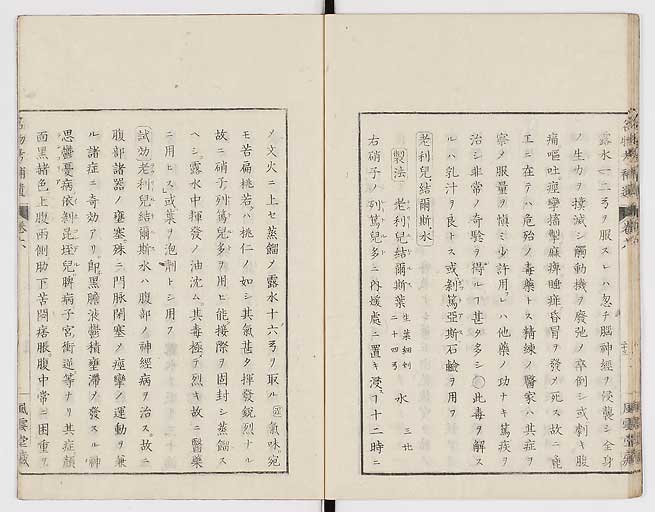 露水一二ヲ服スレハ忽チ脳神経ヲ侵襲シ全身
ノ生力ヲ撲滅シ觸動機ヲ廃弛ノ卒倒シ或劇キ腹
痛嘔吐痙攣搐掣麻痺睡痓昏冒ヲ發メ死ス故ニ
工ニ在テハ危殆ノ毒藥トス精練ノ醫家ハ其症ヲ
察メ服量ヲ慎ミ少許用レハ他藥ノ功ナキ篤疾ヲ
治シ非常ノ奇驗ヲ得ルヿ甚タ多シ此毒ヲ解ス
ルハ乳汁ヲ良トス或剥篤亞斯石鹼ヲ用ヲ
老利兒結爾斯水
製法 老利兒結爾斯葉 生葉細剉 二十四ヲ 水 三
右硝子ノ列篤兒多ニ内媛處ニ置キ浸ヿ十二時ニ
ノ文火ニ上セ蒸餾メ露水十六ヲ取ル 氣味宛
モ苦扁桃若ハ桃仁ノ如シ其氣甚タ揮發鋭烈ナル
故ニ硝子列篤兒多ヲ用ヒ能接際ヲ固封シ蒸餾ス
ヘシ露水中揮發ノ油沈ム其毒極テ烈キ故ニ醫藥
ニ用ヒス或葉ヲ泡劑トシ用ヲ
試効 老利兒結爾斯水ハ腹部ノ神經病ヲ治ス故ニ
腹部諸器ノ壅塞殊ニ門脈閉塞メ痙攣ノ運動ヲ兼
ル諸症ニ奇効アリ即黒膽液鬱積壅滯メ發スル神
思鬱憂病依剥昆垤兒脾病子宮衝逆等ナリ其症顔
面黒赭色上腹兩側肋下苦悶痞脹腹中常ニ困重ヲ
名物考補遺 卷六 風雲堂藏